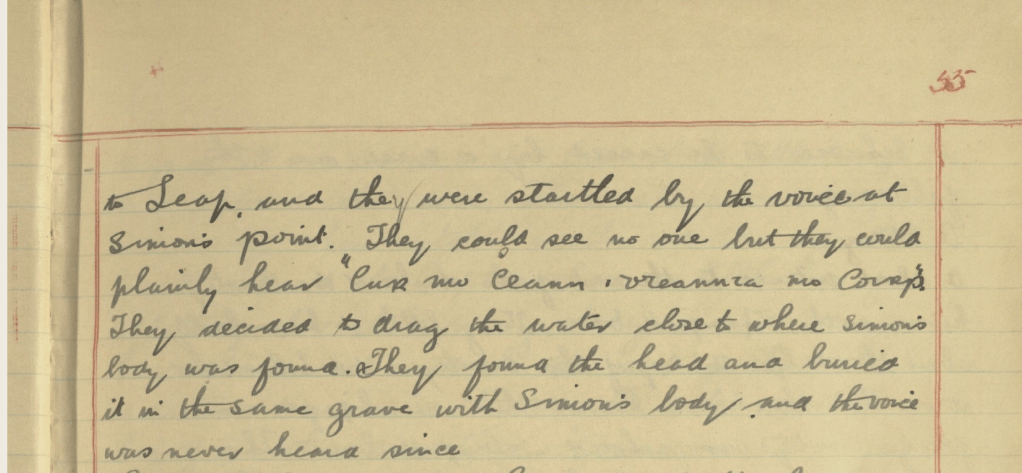 55
to Leap, and they were startled by the voice at
Simon's point. They could see no one but they could
plainly hear "Cuir mo Ċeann i dteannta mo Coirp".
They decided to drag the water close to where Simon's
body was found. They found the head and buried
it in the same grave with Simon's body and the voice
was never heard since